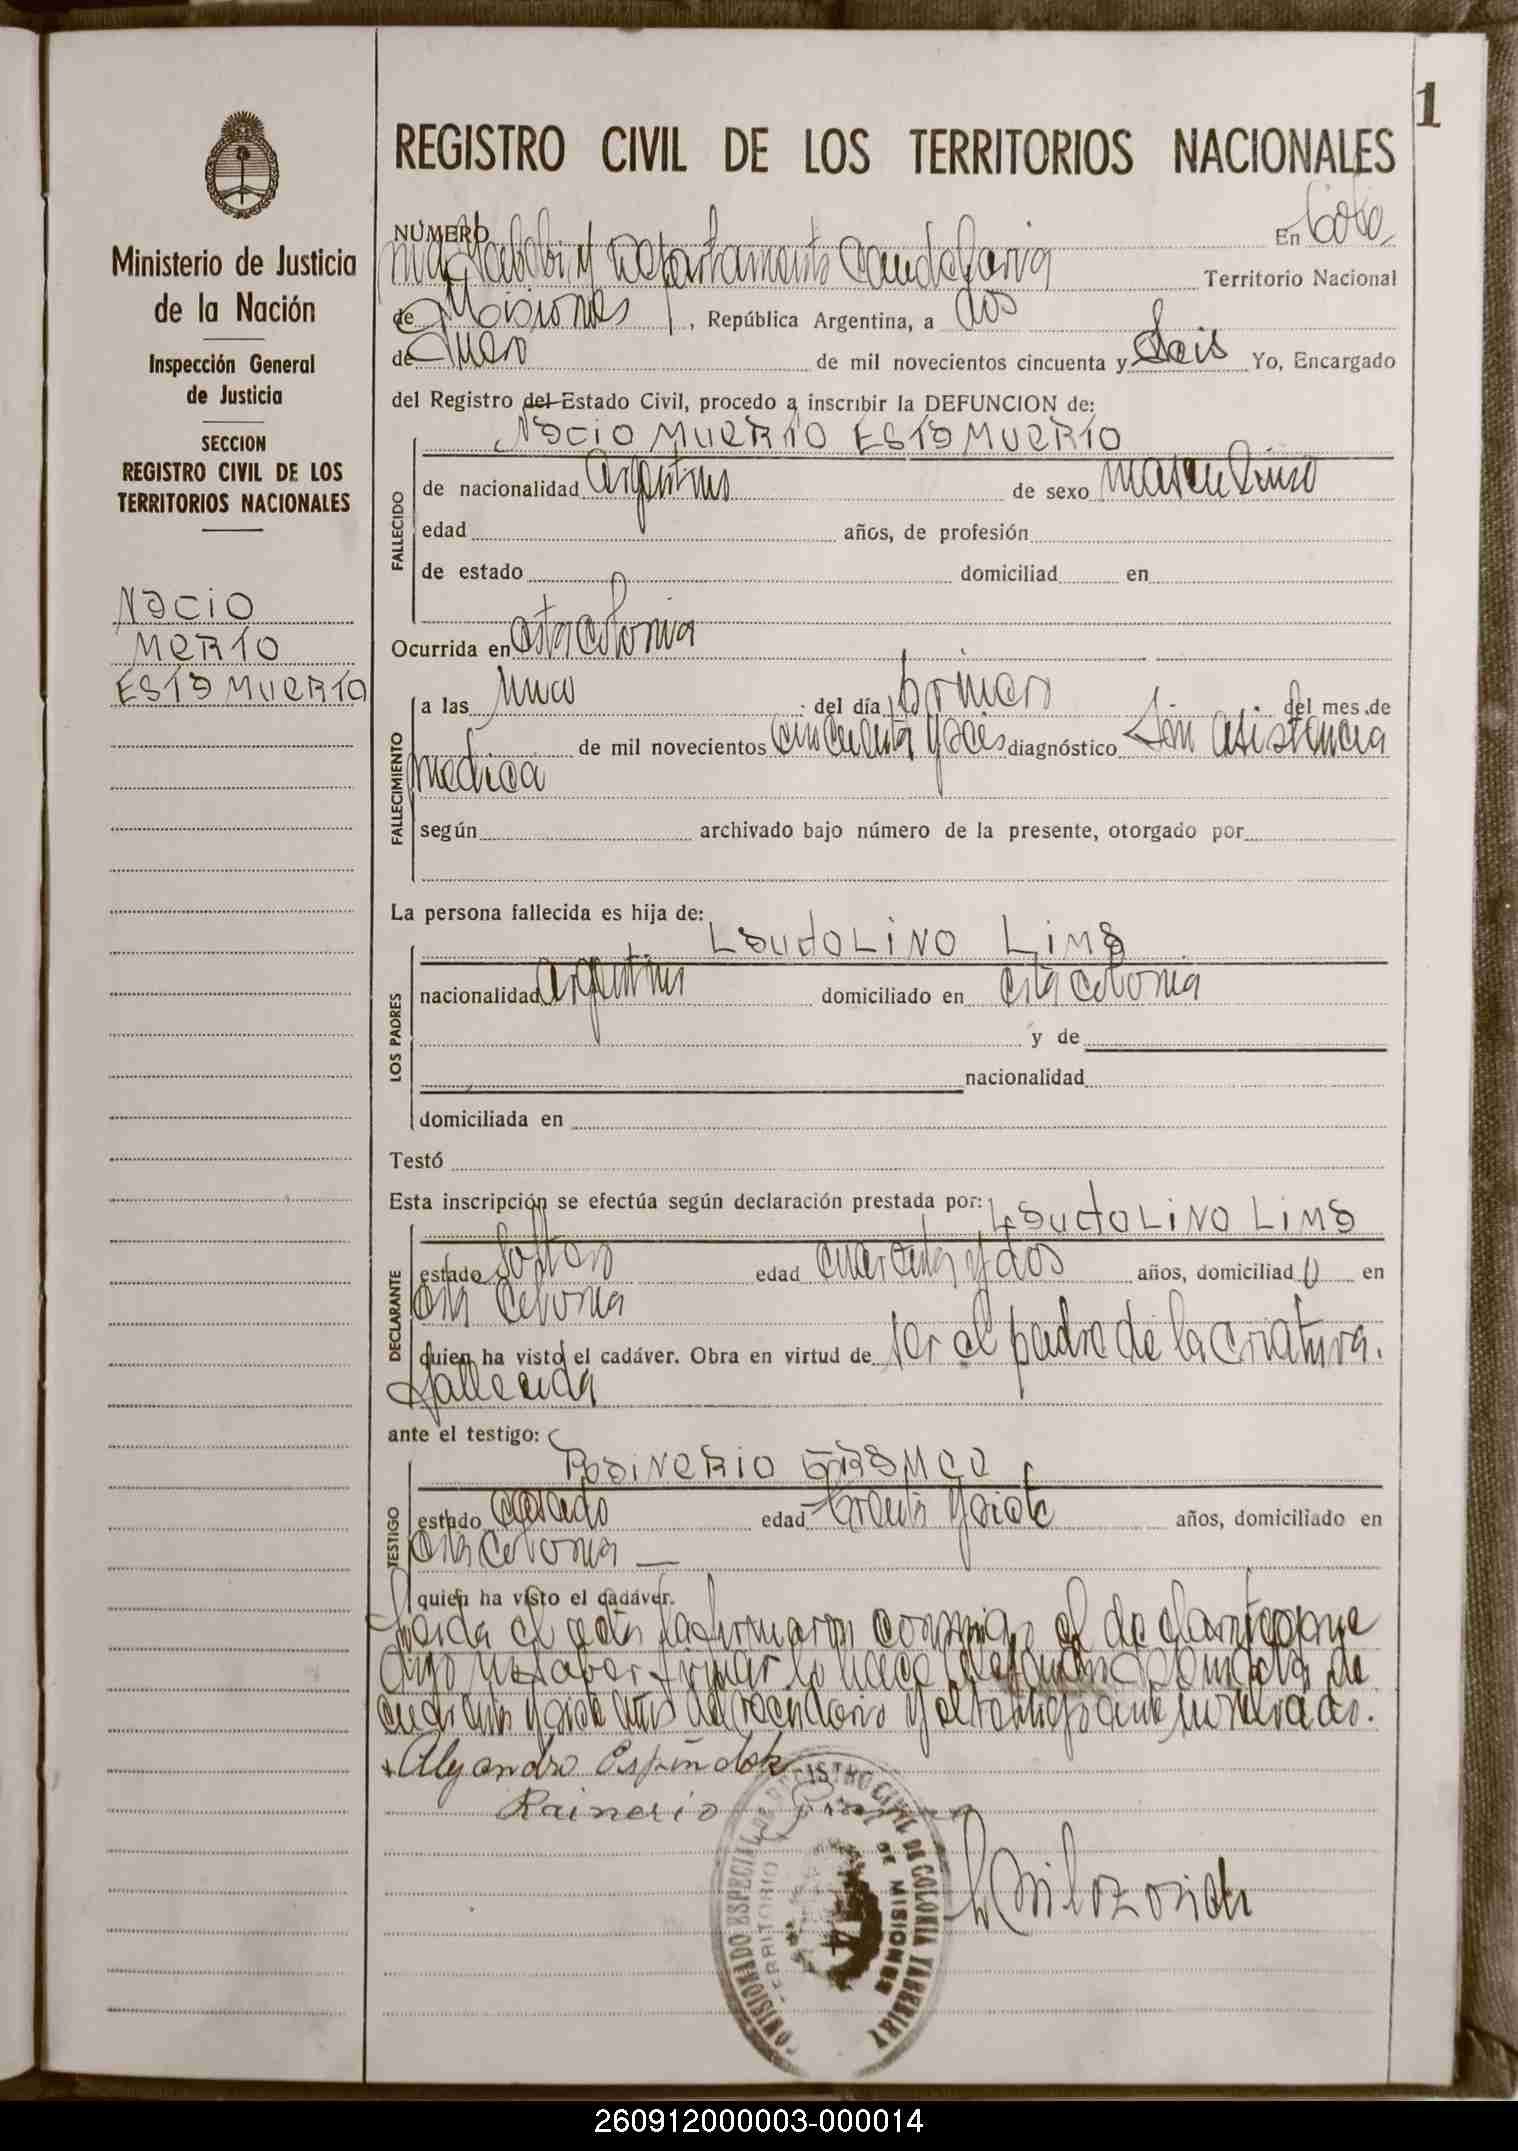 1
REGISTRO CIVIL DE LOS TERRITORIOS NACIONALES
Ministerio de Justicia
de la Nación
Inspección General
de Justicia
SECCION
REGISTRO CIVIL DE LOS
TERRITORIOS NACIONALES
NACIO
MERTO
ESTA MUERTO
NÚMERO En Colo
nia Yabebiry Departamento Candelaria Territorio Nacional
de Misiones, República Argentina, a dos
de Enero de mil novecientos cincuenta y seis Yo, Encargado
del Registro del Estado Civil, procedo a inscribir la DEFUNCION de:
NACIO MUERTO ESTA MUERTO
FALLECIDO
de nacionalidad argentino de sexo masculino
edad años, de profesión
de estado domiciliad en
Ocurrida en esta colonia
FALLECIMIENTO
a las del día primero del mes de
de mil novecientos cincuenta y seis diagnóstico Sin asistencia
medica
según archivado bajo número de la presente, otorgado por
La persona fallecida es hija de:
LAUDOLINO LIMA
LOS PADRES
nacionalidad argentino domiciliado en esta colonia
y de
nacionalidad
domiciliada en
Testó
Esta inscripción se efectúa según declaración prestada por: LAUDOLINO LIMA
DECLARANTE
estado soltero edad cuarenta y dos años, domiciliad o en
esta colonia
quien ha visto el cadáver. Obra en virtud de ser el padre de la criatura
fallecida
ante el testigo:
TESTIGO
estado casado edad treinta y siete años, domiciliado en
esta colonia —
quien ha visto el cadáver.
Leida el acta la firmaron conmigo el declarante que
dijo no saber firmar lo hace Alejandro Espindola de
cuarenta y siete años de vecindario y el testigo ante nombrados.
Alejandro Espindola
Rainerio
COMISIONADO ESPECIAL DE REGISTRO CIVIL DE COLONIA YABEBIRY
TERRITORIO DE MISIONES
260912000003-000014